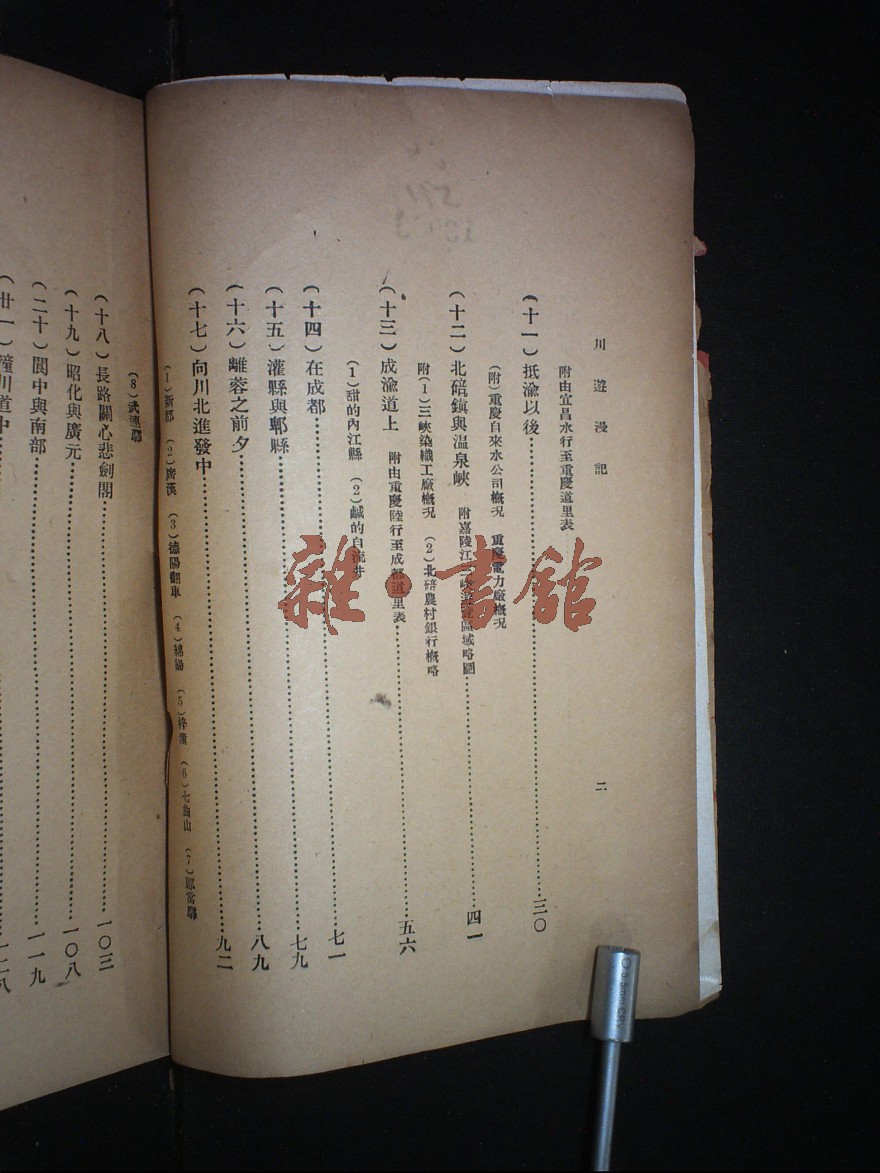 川遊漫記
二
附由宜昌水行至重慶道里表
(十一)抵渝以後……三〇
(附)重慶自來水公司概况 重慶電力廠概况
(十二)北碚鎮與温泉峽 附嘉陵江三峽 區域略圖……四一
附(1)三峽染織工廠概况 (2)北碚農村銀行概略
(十三)成渝道上 附由重慶陸行至成都道里表……五六
(1)甜的內江縣 (2)鹹的自流井
(十四)在成都……七一
(十五)灌縣與郫縣……七九
(十六)離蓉之前夕……八九
(十七)向川北進發中……九二
(1)新都 (2)廣漢 (3)德陽翻車 (4)綿陽 (5)梓潼 (6)七曲山 (7)
(8)武連驛
(十八)長路關心悲劍閣……一〇三
(十九)昭化與廣元……一〇八
(二十)閬中與南部……一一九
(廿一)潼川道中……一二八
雜·書館
0.5mm CRV